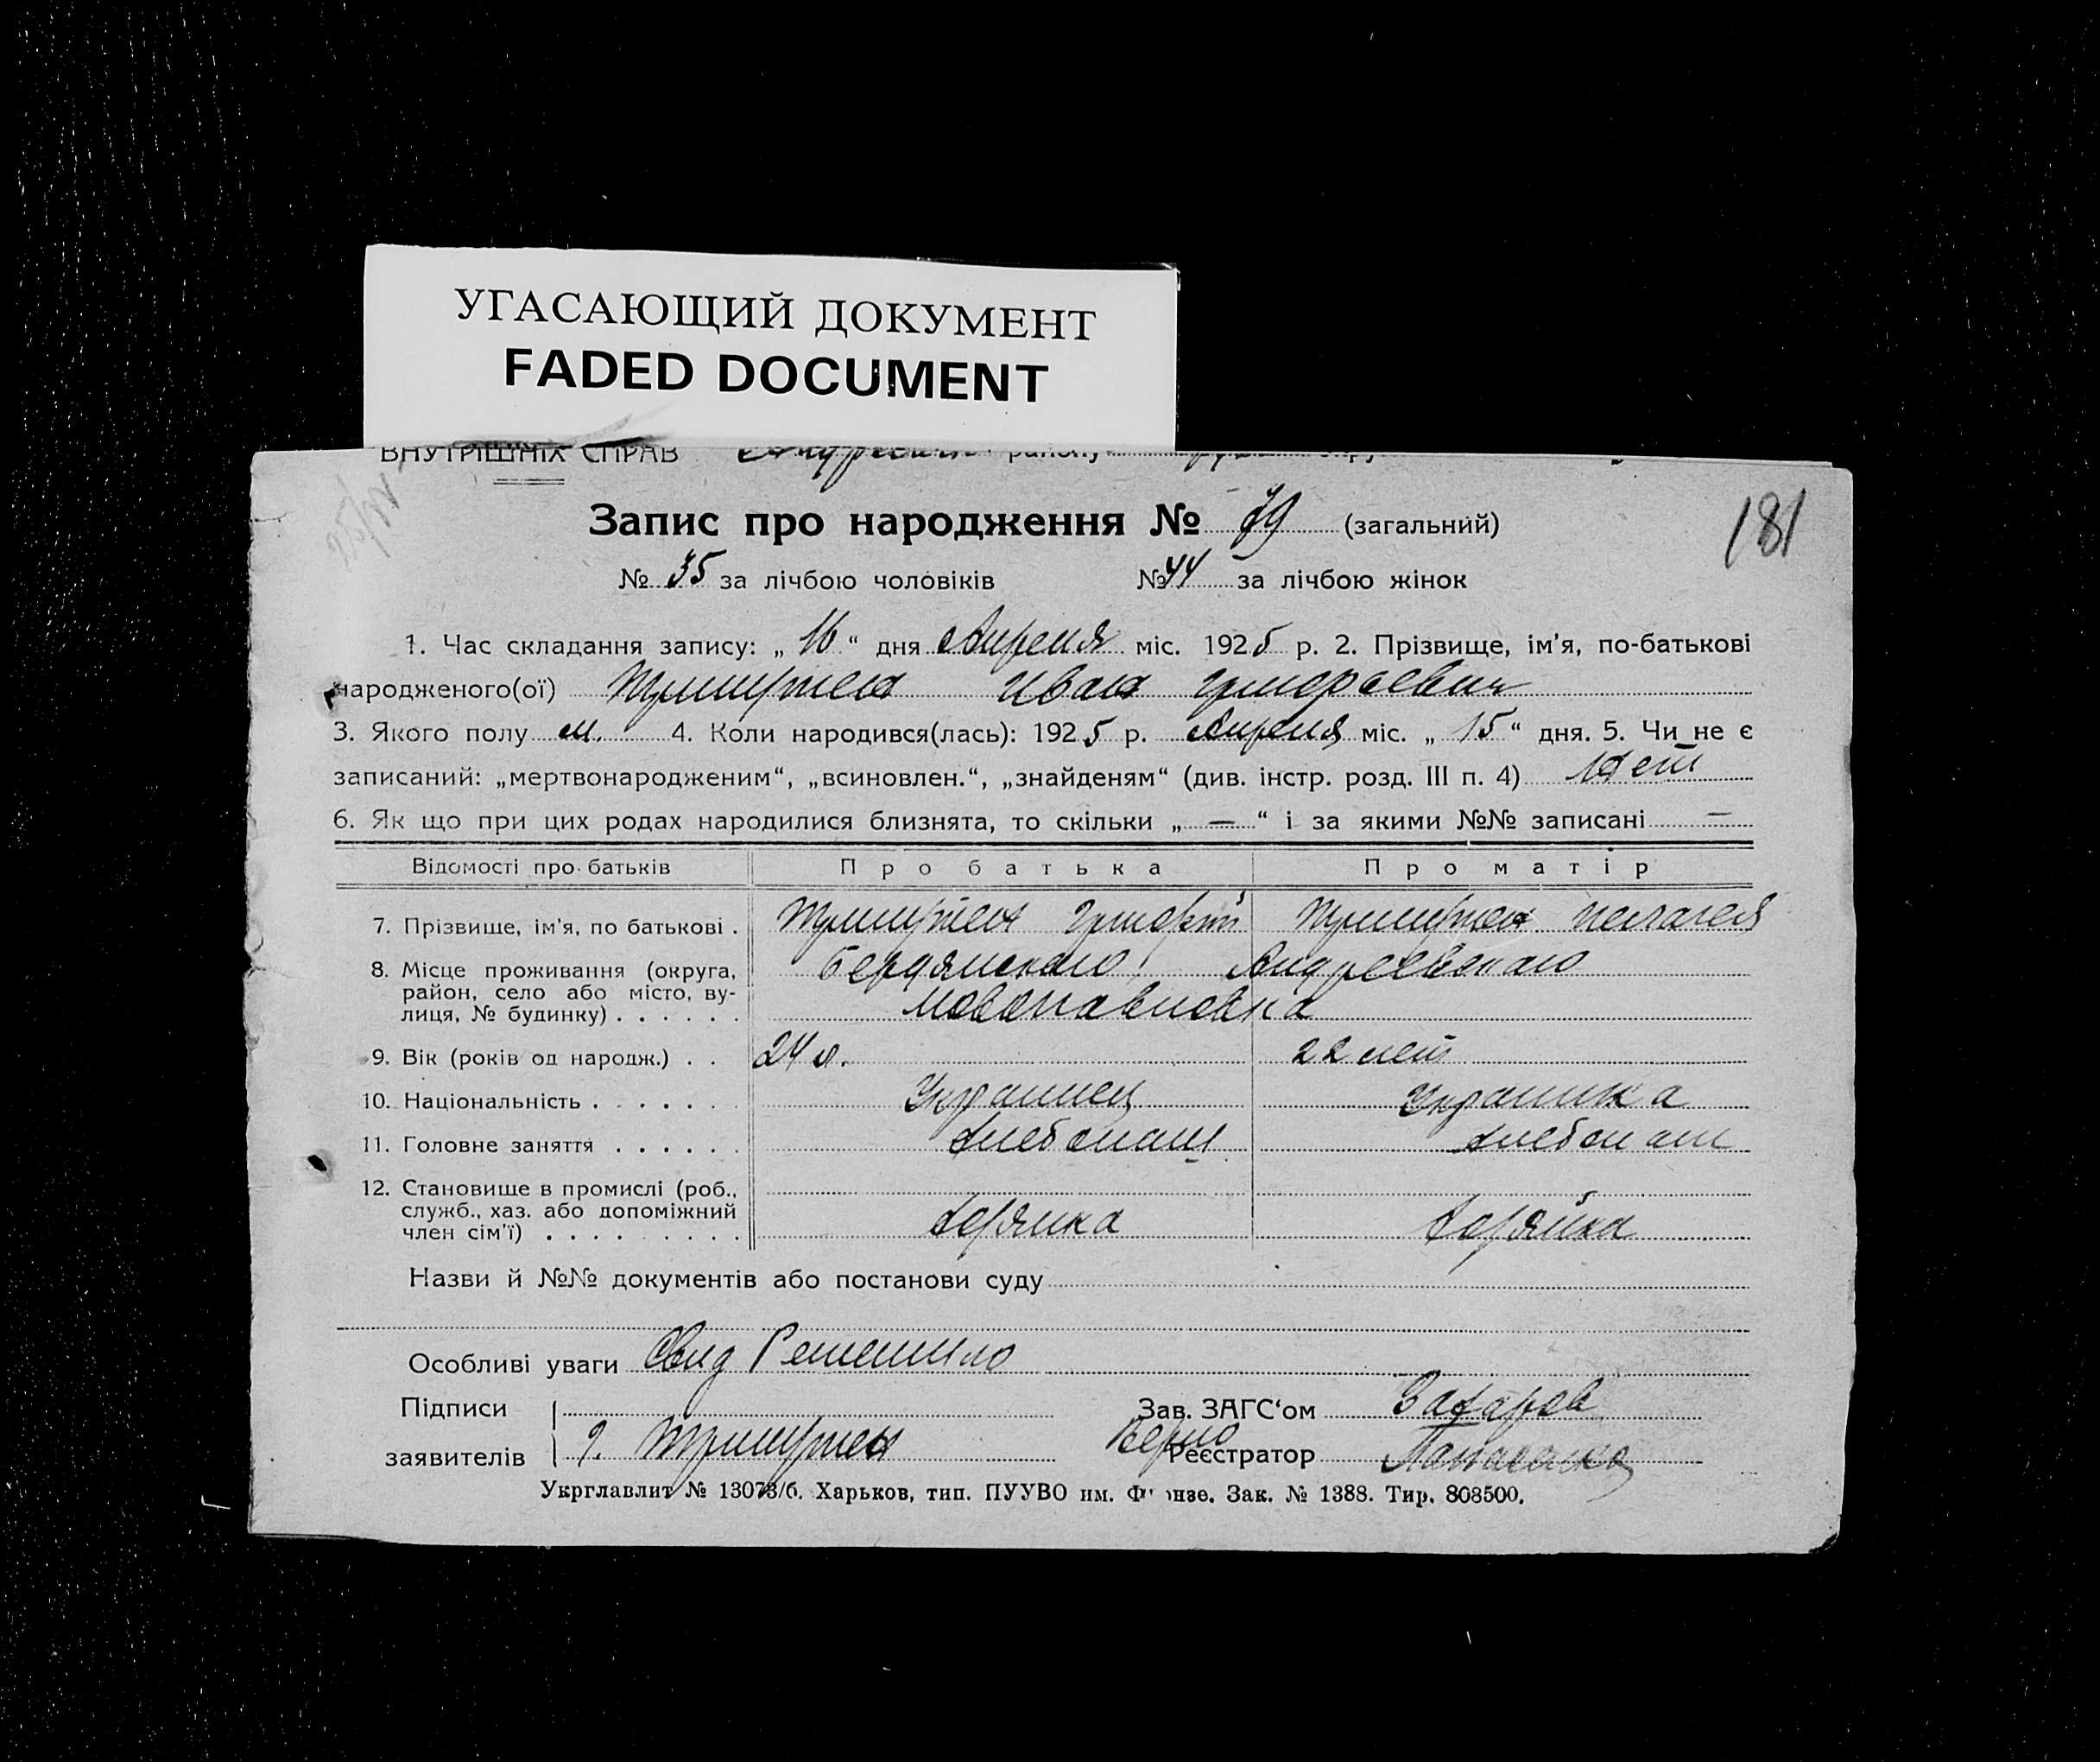 УГАСАЮЩИЙ ДОКУМЕНТ
FADED DOCUMENT
ВНУТРІШНІХ СПРАВ району
Запис про народження № 79 (загальний)
181
№ 35 за лічбою чоловіків № 44 за лічбою жінок
1. Час складання запису: „ 16 “ дня Апреля міс. 1925 р. 2. Прізвище, ім'я, по-батькові
народженого(ої) Иван
3. Якого полу м. 4. Коли народився(лась): 1925 р. Апреля міс. „ 15 “ дня. 5. Чи не є
записаний: „мертвонародженим“, „всиновлен.“, „знайденям“ (див. інстр. розд. III п. 4) Нет
6. Як що при цих родах народилися близнята, то скільки „ — “ і за якими №№ записані —
Відомості про батьків Про батька Про матір
7. Прізвище, ім'я, по батькові . Пелагея
8. Місце проживання (округа, Бердянского Андреевского
район, село або місто, ву-
лиця, № будинку) . . . . . . Новопавловка
9. Вік (років од народж.) . . 24 л. 22 лет
10. Національність . . . . . . Украинец Украинка
11. Головне заняття . . . . . . хлебопаш хлебопаш
12. Становище в промислі (роб.,
служб., хаз. або допоміжний
член сім'ї) . . . . . . . . . хозяйка хозяйка
Назви й №№ документів або постанови суду
Особливі уваги
Підписи Зав. ЗАГС‘ом Захаров
заявителів Верно Реєстратор
Укрглавлит № 13073/б. Харьков, тип. ПУУВО им. Фрунзе. Зак. № 1388. Тир. 808500.